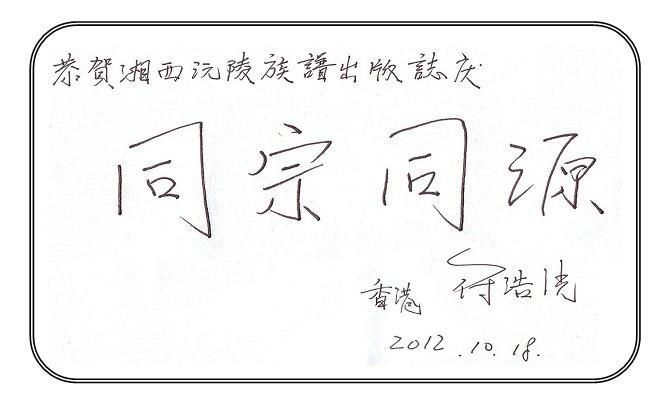 恭賀湘西沅陵族譜出版誌庆
同宗同源
香港 付浩洸
2012.10.18.